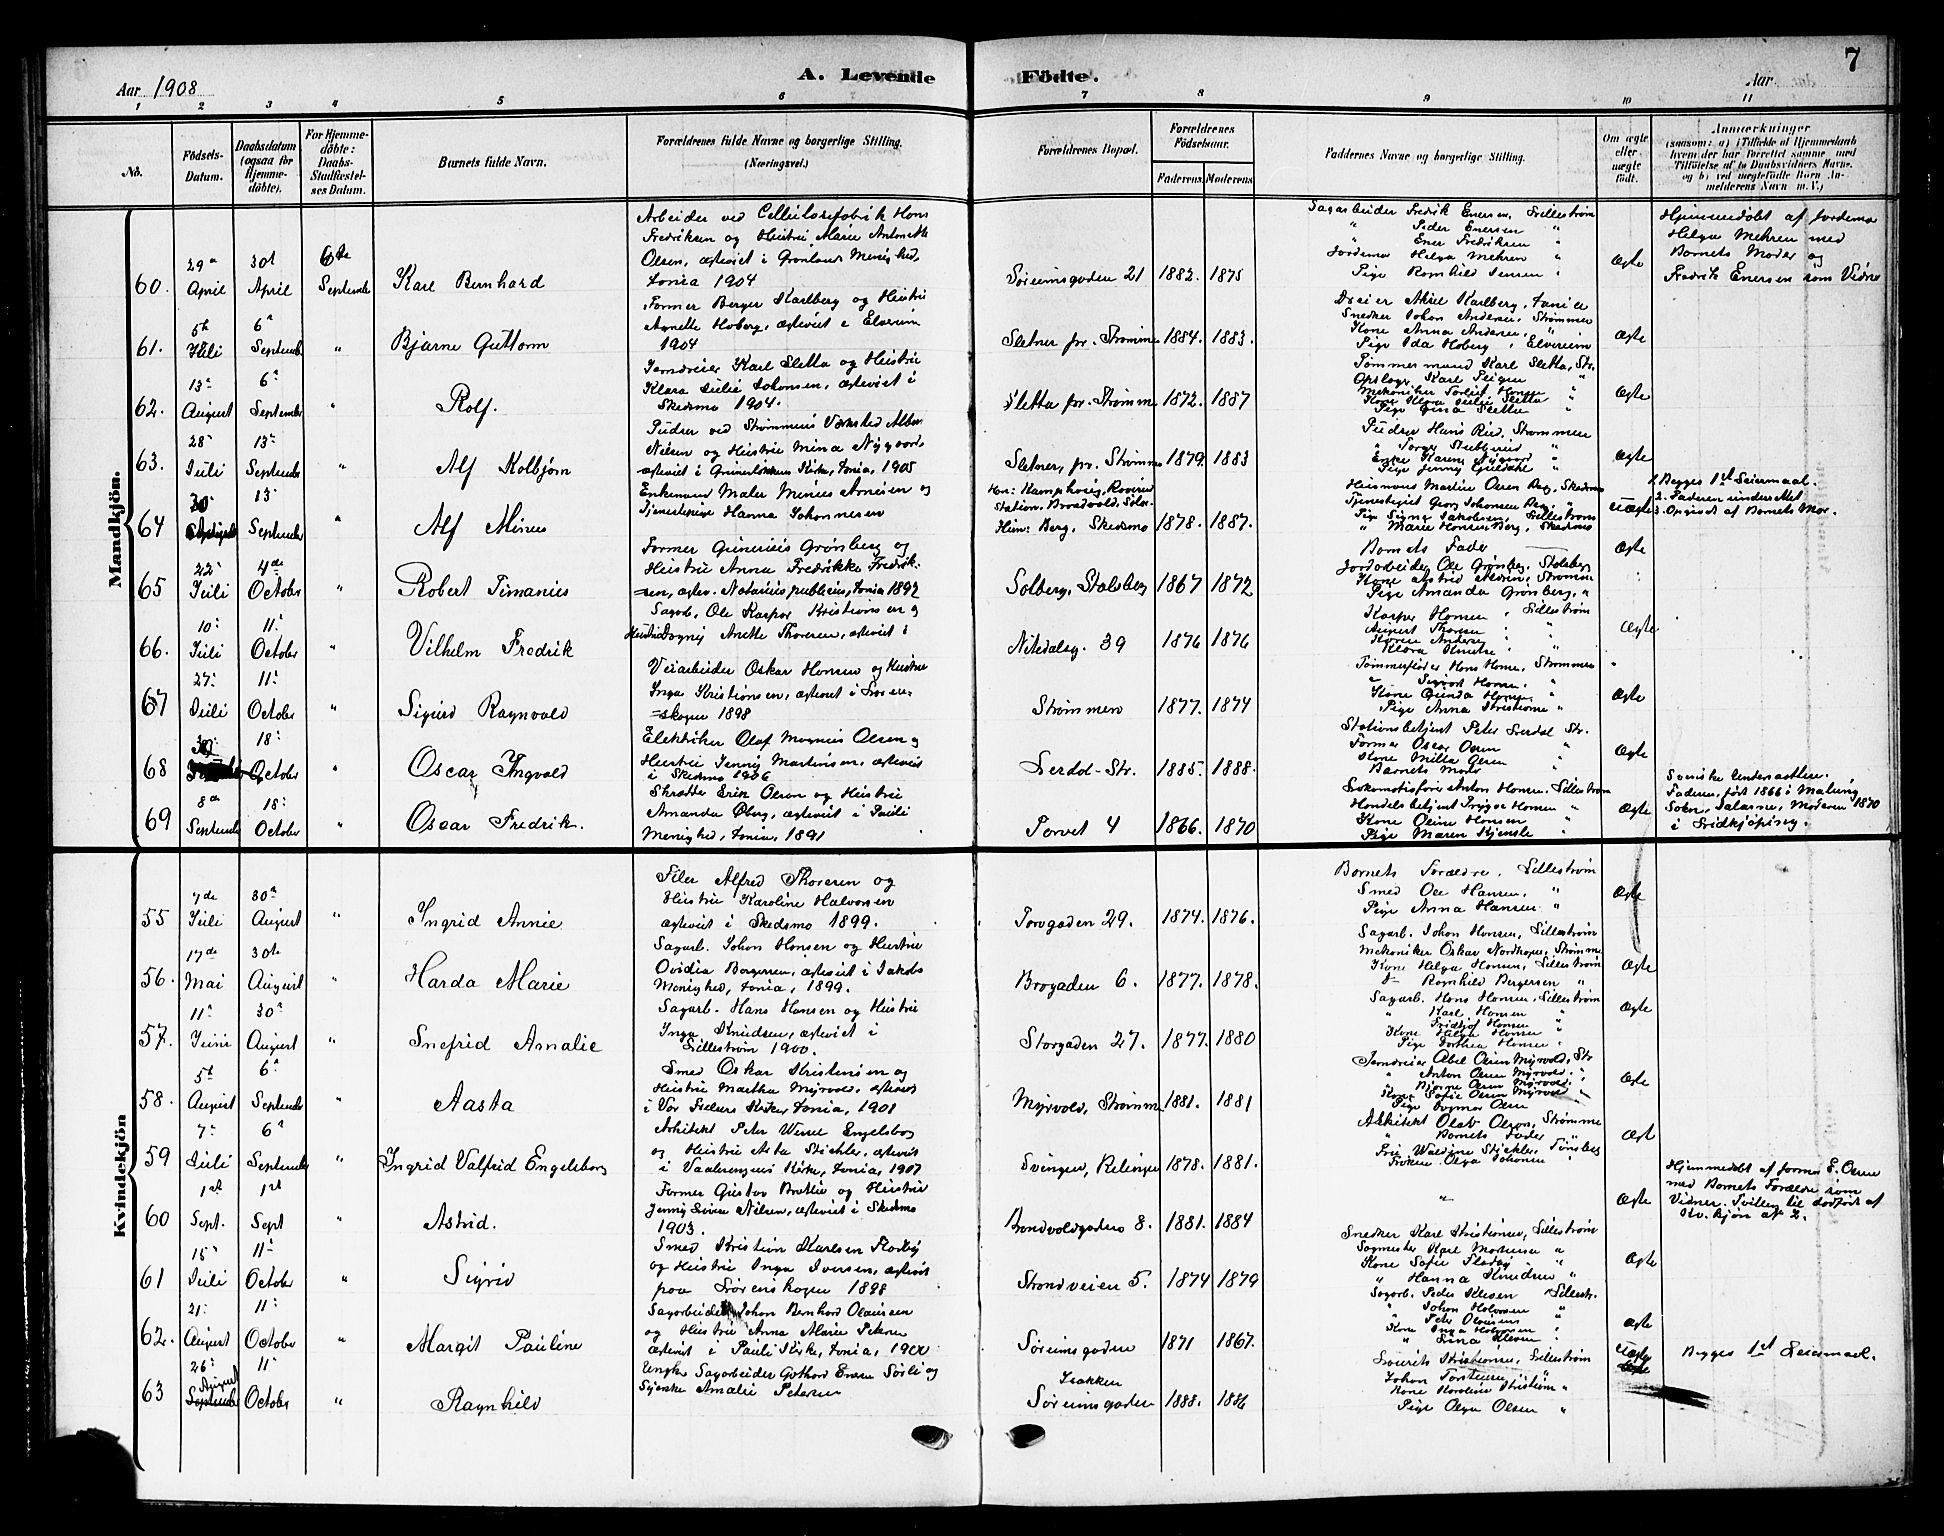 7
A. Levende Födte.
Aar 1908
Aar
1 2 3 4 5 6 7 8 9 10 11
No.
Födsels-Datum.
Daabsdatum (ogsaa for Hjemmedöbte).
For Hjemmedöbte: Daabs-Stadfæstelses Datum.
Barnets fulde Navn.
Forældrenes fulde Navne og borgerlige Stilling. (Næringsvei.)
Forældrenes Bopæl.
Forældrenes Födselsaar.
Faderens. Moderens.
Faddernes Navne og borgerlige Stilling.
Om ægte eller uægte födt.
Anmærkninger
Mandkjön.
60. 29de April 30te April 6te September Karl Bernhard
Arbeider ved Cellulosefabrik Hans
Fredriksen og Hustru Marie Antonette
Olsen, ægteviet i Grønland Menighed,
1904
Sørumsgaden 21 1882. 1875
Sagarbeider Fredrik Enersen, Lillestrøm
" Peder Enersen "
" Ener Fredriksen "
Jordemor Helga Mehren "
Pige Ragnhild Jensen "
Ægte
Hjemmedøbt af Jordemor
Helga Mehren med
Barnets Moder og
Fredrik Enersen som Vidner
61. 5te Juli 6te September " Bjarne Guttorm
Former Berger Karlberg og Hustru
Agnette Hoberg, ægteviet i Elverum
1904
Sletner pr. Strømmen 1884. 1883.
Snedker Johan Andersen, Strømmen
Kone Anna Andersen, "
Pige Ida Hoberg, Elverum
Ægte
62. 13de August 6te September " Rolf.
Jerndreier Karl Sletta og Hustru
Klara Julie Johansen, ægteviet i
Skedsmo 1904.
Sletta pr. Strømmen 1872. 1887
Tømmermand Karl Sletta, Str.
Pige Gina Sletta "
Ægte
63. 28de Juli 13de September " Alf Kolbjørn
Pudser ved Strømmens Værksted Albert
Nilsen og Hustru Mina Nygaard
ægteviet i Grünerløkkens Kirke, 1905
Sletner, pr. Strømmen 1879. 1883
Pudser Hans Rud, Strømmen
Enke Karen Nygaard "
Ægte
64 30 August 13 September " Alf Minus
Enkemand Maler Minius Arnesen og
Tjenestepige Hanna Johannesen
Station, Brodvold, Solør.
Hun: Berg, Skedsmo 1878. 1887.
Husmand Martin Olsen Berg, Skedsmo
Georg Johansen Berg,
Pige Signe Jakobsen, Lillestrøm
Marie Hansen Berg, Skedsmo
Uægte
1. Begges 1st Leiermaal.
2. Faderen undersøttet
3. Opgivet af Barnets Mor.
65 22de Juli 4de October " Robert Timanius
Former Gunerius Grønberg og
Hustru Anna Fredrikke Fredrik-
=sen, ægtev. Notarius publicus, 1892
Solberg, Stalsberg 1867 1872
Barnets Fader
Jordarbeider Ole Grønberg, Stalsberg
Pige Amanda Grønberg, "
Ægte
66. 10de Juli 11te October " Vilhelm Fredrik
Sagarb. Ole Kasper Kristiansen og
Anette Thoresen, ægteviet i
Nitedalsg. 39 1876 1876
Kasper Hansen, Lillestrøm
August Thoresen "
Karen Andersen "
Ægte
67 27de Juli 11te October " Sigurd Ragnvald
Veiarbeider Oskar Hansen og Hustru
Inga Kristiansen, ægteviet i Sør en-
=skogen 1898
Strømmen 1877. 1874
Hans Hansen, Strømmen
Sigvart Hansen, "
Kone Gunda Hansen "
Pige Anna Kristiansen "
Ægte
68 30. October 18de " Oscar Ingvald
Elektriker Olaf Magnus Olsen og
Hustru Jenny Martinsen, ægteviet
i Skedsmo 1906
Lerdal-Str. 1885. 1888.
Stationsbetjent Peter Lerdal Str.
Former Oscar Olsen "
Kone Milla Olsen "
Barnets Moder
Ægte
69 8de September 18de October " Oscar Fredrik.
Skrædder Erik Olsson og Hustru
Amanda Öberg, ægteviet i Pauli
Menighed, 1891
Torvet 4 1866. 1870
Lokomotivfører Anton Hansen. Lillestrøm
Handelsbetjent Trygve Hansen "
Kone Oline Hansen "
Pige Maren "
Ægte
Svenske Undersaatter.
Faderen født 1866 i Malung
Sokn, Dalarne, Moderen 1870
i Lidkjøping.
Kvindekjön
55 7de Juli 30te August " Ingrid Annie
Filer Alfred Thoresen og
Hustru Karoline Halvorsen
ægteviet i Skedsmo 1899.
Torvgaden 29. 1874. 1876.
Barnets Forældre. Lillestrøm
Smed Ole Hansen, "
Pige Anna Hansen "
Ægte
56. 17de Mai 30te August " Harda Marie
Sagarb. Johan Hansen og Hustru
Ovidia Bergersen, ægteviet i Jakobs
Menighed, 1899.
Brogaden 6. 1877. 1878.
Sagarb. Johan Hansen, Lillestrøm
Mekaniker Oskar Nordhagen, Strømmen
Kone Helga Hansen, Lillestrøm
Ragnhild Bergersen "
Ægte
57. 11te Juni 30te August " Snefrid Amalie
Sagarb. Hans Hansen og Hustru
Inga Knudsen, ægteviet i
Lillestrøm 1900.
Storgaden 27. 1877. 1880
Sagarb. Hans Hansen, Lillestrøm
" Karl Hansen "
Fridtjof Hansen "
Kone Helga Hansen "
Pige Dorthea Hansen "
Ægte
58. 5te August 6te September " Aasta
Smed Oskar Kristensen og
Hustru Martha Myrvold, ægteviet
i Vor Frelsers Kirke, 1901
Myrvold, Strømmen 1881. 1881
Jerndreier Abel Olsen Myrvold, Str
" Anton Olsen Myrvold. "
" Bjarne Olsen Myrvold. "
Kone Sofie Olsen Myrvold "
Pige Dagmar Olsen
Ægte
59 7de Juli 6te September " Ingrid Valfrid Engelsborg
Arkitekt Peter Wessel Engelsborg
og Hustru Asta Stichler, ægteviet
i Vaalerengens Kirke, 1907
Svingen, Relingen 1878. 1881.
Arkitekt Olav Olsson, Strømmen
" Barnets Fader "
Fru Waldine Stichler, Tønsberg
Frøken Olga Johansen "
Ægte
60 1st Sept. 1st Sept " Astrid.
Former Gustav Brattlie og Hustru
Jenny Nilsen, ægteviet i Skedsmo
1903.
Brandvoldgadens 8. 1881. 1884
"
Ægte
Hjemmedøbt af former E. Olsen
med Barnets Forældre som
Vidner. Tvilling til dødfødt af
Kv. kjøn af 2.
61 15de Juli 11te October " Sigrid
Smed Kristian Karlsen Fladby
og Hustru Inga Iversen, ægteviet
paa Sørenskogen 1898
Strandveien 5. 1874 1879
Snedker Karl Kristiansen, Lillestrøm
Sagmester Karl Mortensen "
Kone Sofie Fladby "
" Hanna Knudsen "
Ægte
62. 21de August 11te October " Margit Pauline
Sagarbeider Johan Bernhard Olausen
og Hustru Anna Marie Petersen
ægteviet i Pauli Kirke, 1900
Sørumsgaden 1871 1867.
Sagarb. Peder Klesen Lillestr.
" Johan Halvorsen "
" Peter Olausen "
Kone Inga Halvorsen "
Ægte
63 26de August October 11te " Ragnhild
Ungkar Sagarbeider Gothard Ensen Sørli og
Amalie Petersen
Isakken
Sørumsgaden 1888. 1886
Lauritz Kristiansen, Lillestrøm
Johan Torstensen, "
Kone Karoline Kristiansen "
Pige Olga Olsen "
Uægte
Begges 1st Leiermaal.